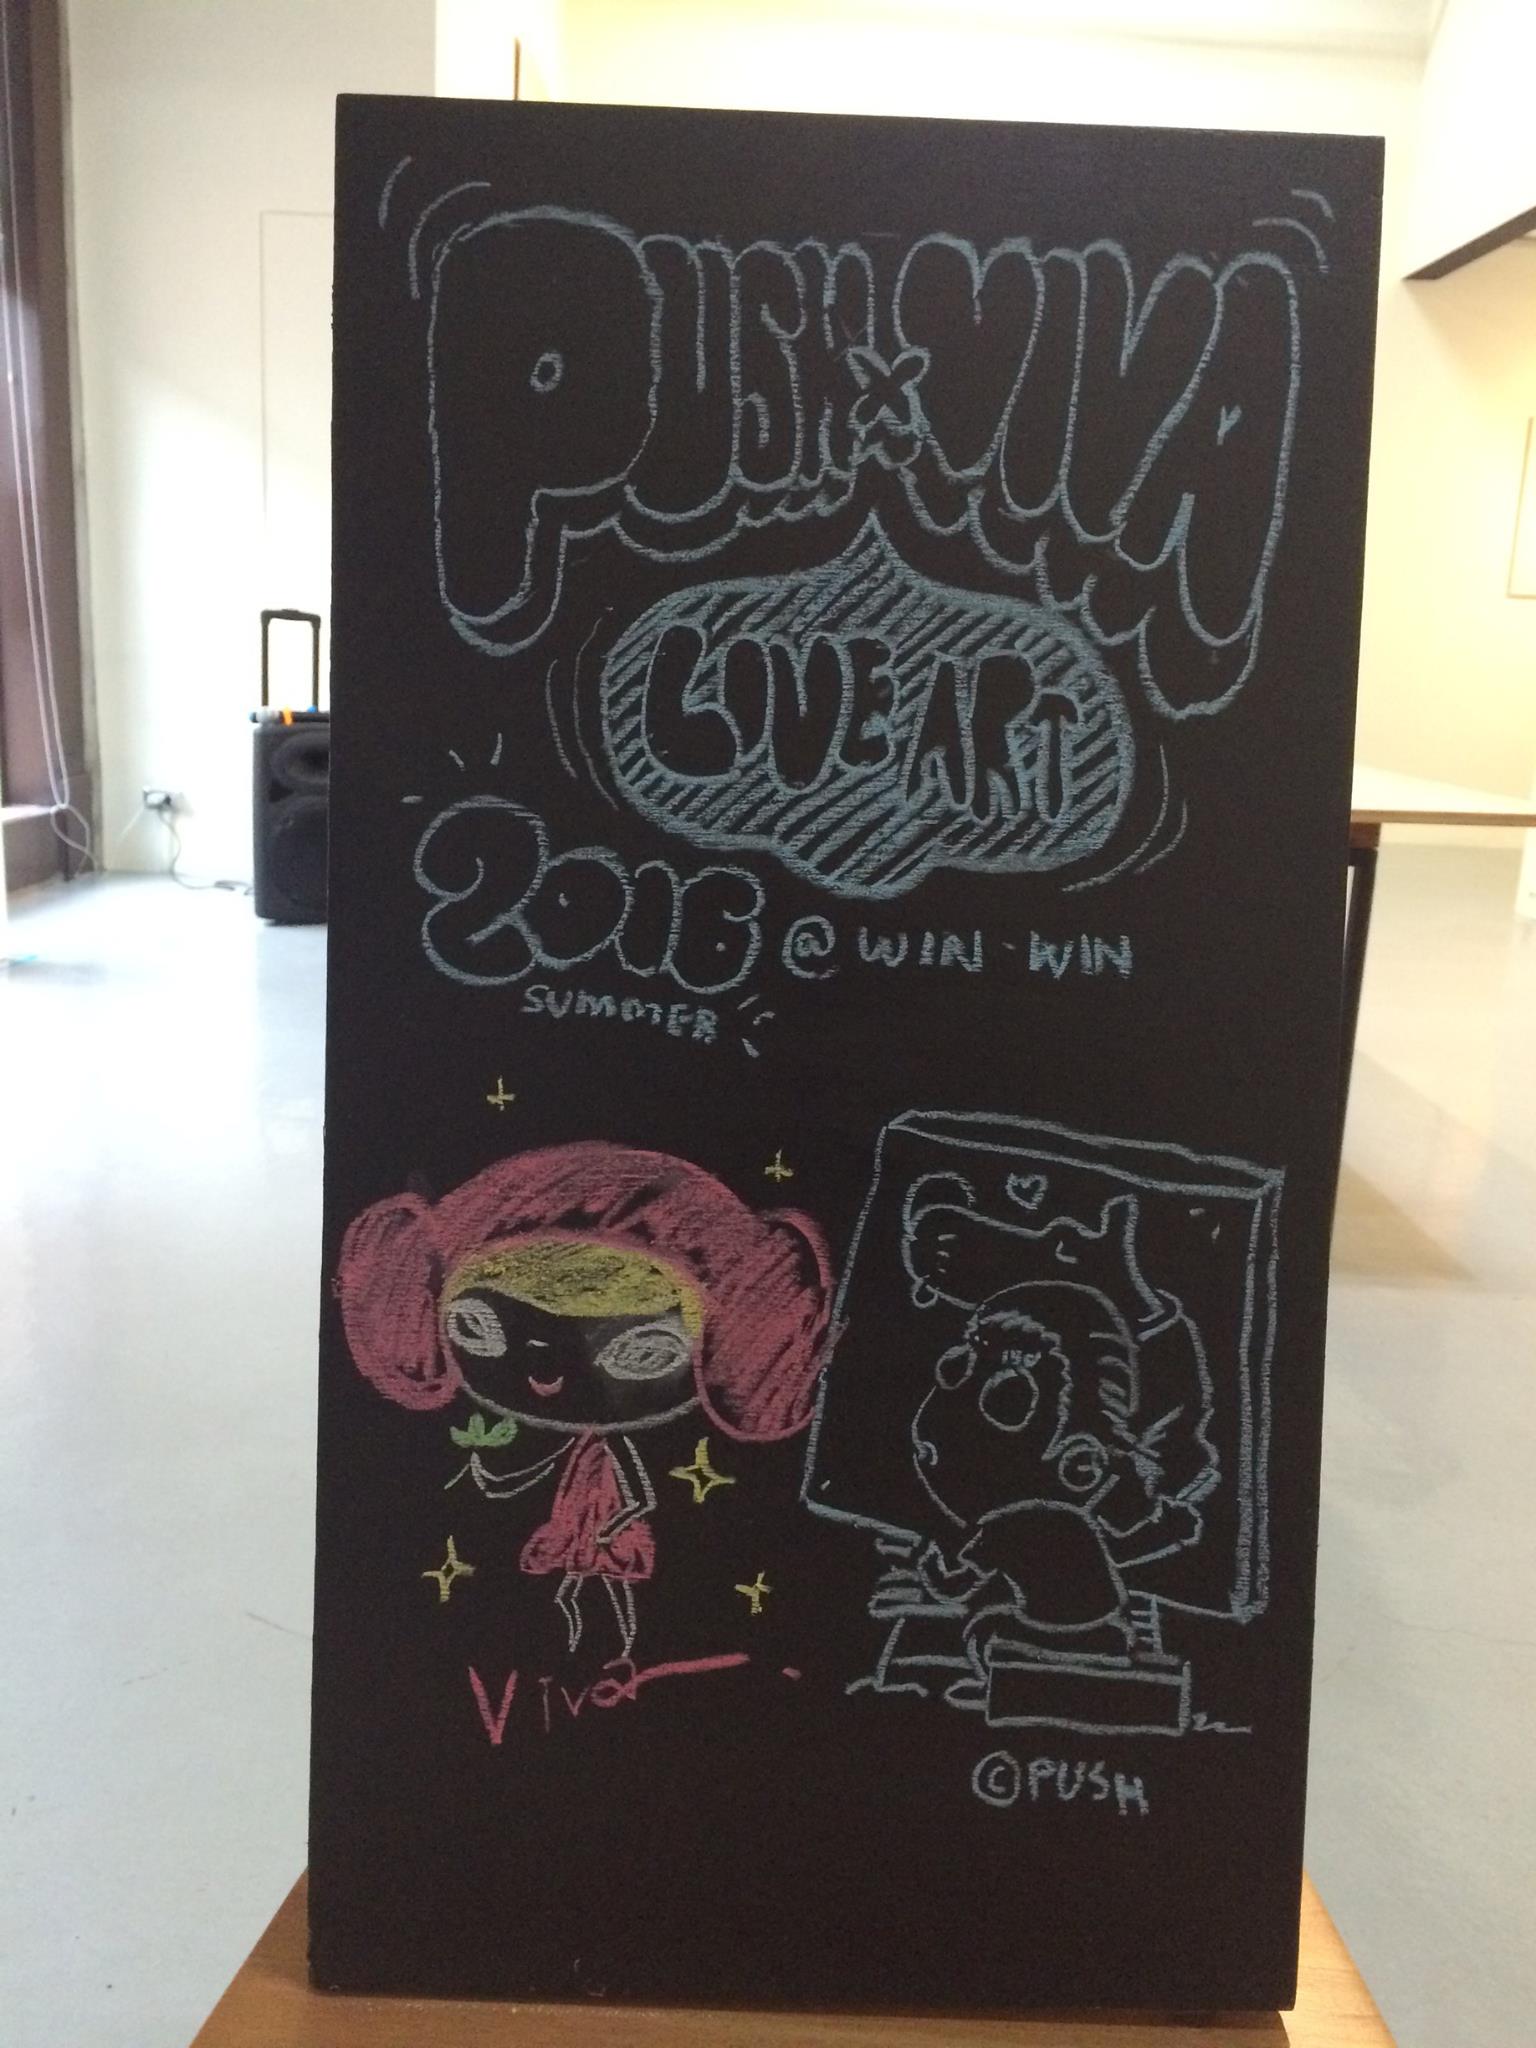 PUSH x VIVA
LIVE ART
2016 @ WIN-WIN
SUMMER
Viva
©PUSH